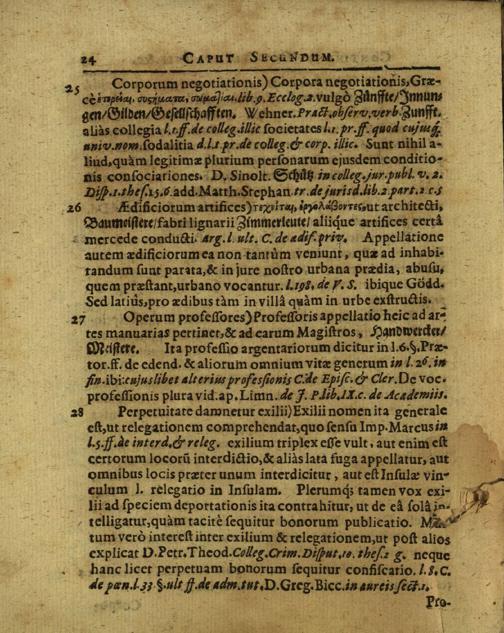 24 CAPUT SECUNDUM.
25 Corporum negotiationis) Corpora negotiationis, Græ-
cè ἑταιρίαι, συςήματα, σωμάλια. lib. 9. Ecclog. 2. vulgò Zünffte/ Innun-
gen/ Gilden/ Gesellschafften. Wehner. Pract. observ. verb. Zunfft.
aliàs collegia l. 1. ff. de colleg. illic societates l. 1. pr. ff. quod cujusq;
univ. nom. sodalitia d. l. 1. pr. de colleg. & corp. illic. Sunt nihil a-
liud, quàm legitimæ plurium personarum ejusdem conditio-
nis consociationes. D. Sinolt. Schütz in colleg. jur. publ. v. 2.
Disp. 1. thes. 15. 6. add. Matth. Stephan. tr. de jurisd. lib. 2. part. 2. c. 5
26 Ædificiorum artifices) τεχνῖται, ἐργολάβοντες, ut architecti,
Baumeistere/ fabri lignarii Zimmerleute/ aliique artifices certâ
mercede conducti. arg. l. ult. C. de ædif. priv. Appellatione
autem ædificiorum ea non tantùm veniunt, quæ ad inhabi-
tandum sunt parata, & in jure nostro urbana prædia, abusu,
quem præstant, urbano vocantur. l. 198. de V. S. ibique Gödd.
Sed latiùs, pro ædibus tàm in villâ quàm in urbe exstructis.
27 Operum professores) Professoris appellatio heic ad ar-
tes manuarias pertinet, & ad earum Magistros, Handwercker/
Meistere. Ita professio argentariorum dicitur in l. 6. §. Præ-
tor. ff. de edend. & aliorum omnium vitæ generum in l. 26. in
fin. ibi: cujuslibet alterius professionis C. de Episc. & Cler. De voc.
professionis plura vid. ap. Limn. de J. P. lib. IX. c. de Academiis.
28 Perpetuitate damnetur exilii) Exilii nomen ita generale
est, ut relegationem comprehendat, quo sensu Imp. Marcus in
l. 5. ff. de interd. & releg. exilium triplex esse vult, aut enim est
certorum locorũ interdictio, & aliàs lata fuga appellatur, aut
omnibus locis præter unum interdicitur, aut est Insulæ vin-
culum l. relegatio in Insulam. Plerumq; tamen vox exi-
lii ad speciem deportationis ita contrahitur, ut de eâ solâ in-
telligatur, quàm tacitè sequitur bonorum publicatio.
tum verò interest inter exilium & relegationem, ut post alios
explicat D. Petr. Theod. Colleg. Crim. Disput. 10. thes. 2 g. neque
hanc licet perpetuam bonorum sequitur confiscatio. l. 8. C.
de pœn. l. 33 §. ult ff. de adm. tut. D. Greg. Bicc. in aureis sect. 1.
Pro-